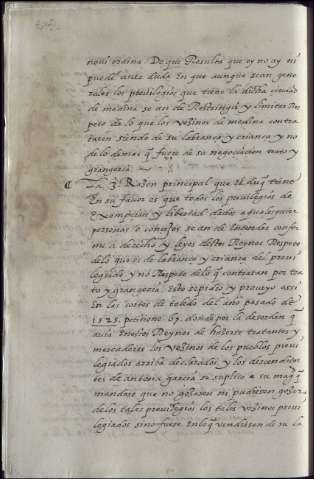 nouissima. De que Resulta que oy no ay ni
puede auer duda En que aunque sean gene
rales los priuilegios que tiene la dicha ciudad
de medina se an de Restringir y limitar Res
peto de lo que los vezinos de medina contra
taren siendo de su labrança y criança y no
de lo demas q̃ fuere de su negociacion trato y
grangeria
¶ La 3ª Razon principal que el duq̃ tiene
En su fauor es que todos los priuilegios de
Exempcion y libertad dados a qualesquier
personas o conçejos se an de Entender confor
me a derecho y leyes destos Reynos Respeto
de lo que es de labrança y criança del preui
legiado y no Respeto de lo q̃ contratan por tra
to y grangeria Esto se pidio y proueyo assi
En las cortes de toledo del año pasado de
1525. petiçion 67. donde por la desorden q̃
auia En estos Reynos de hazerse tratantes y
mercaderes los vezinos de los pueblos preui
legiados arriba declarados, y los descendien
tes de Antona garcia se suplico a su mag.
mandase que no gozasen ni pudiesen gozar
de los tales preuilegios los tales vezinos preui
legiados sino fuese En lo q̃ vendiesen de su la